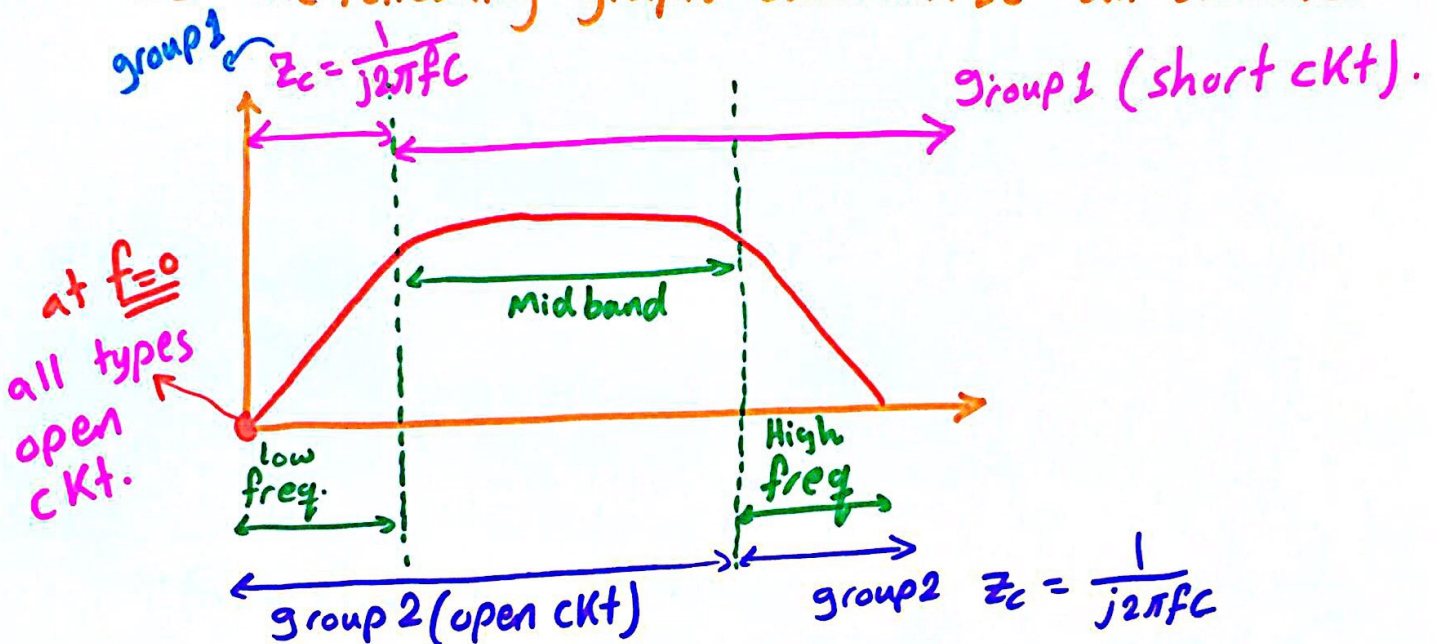 following graph
group1
Zc = 1/j2πfC
group1 (short cKt).
at f=0
all types
open
cKt.
Midband
low
freq.
High
freq
group2 (open cKt)
group2 Zc = 1/j2πfC